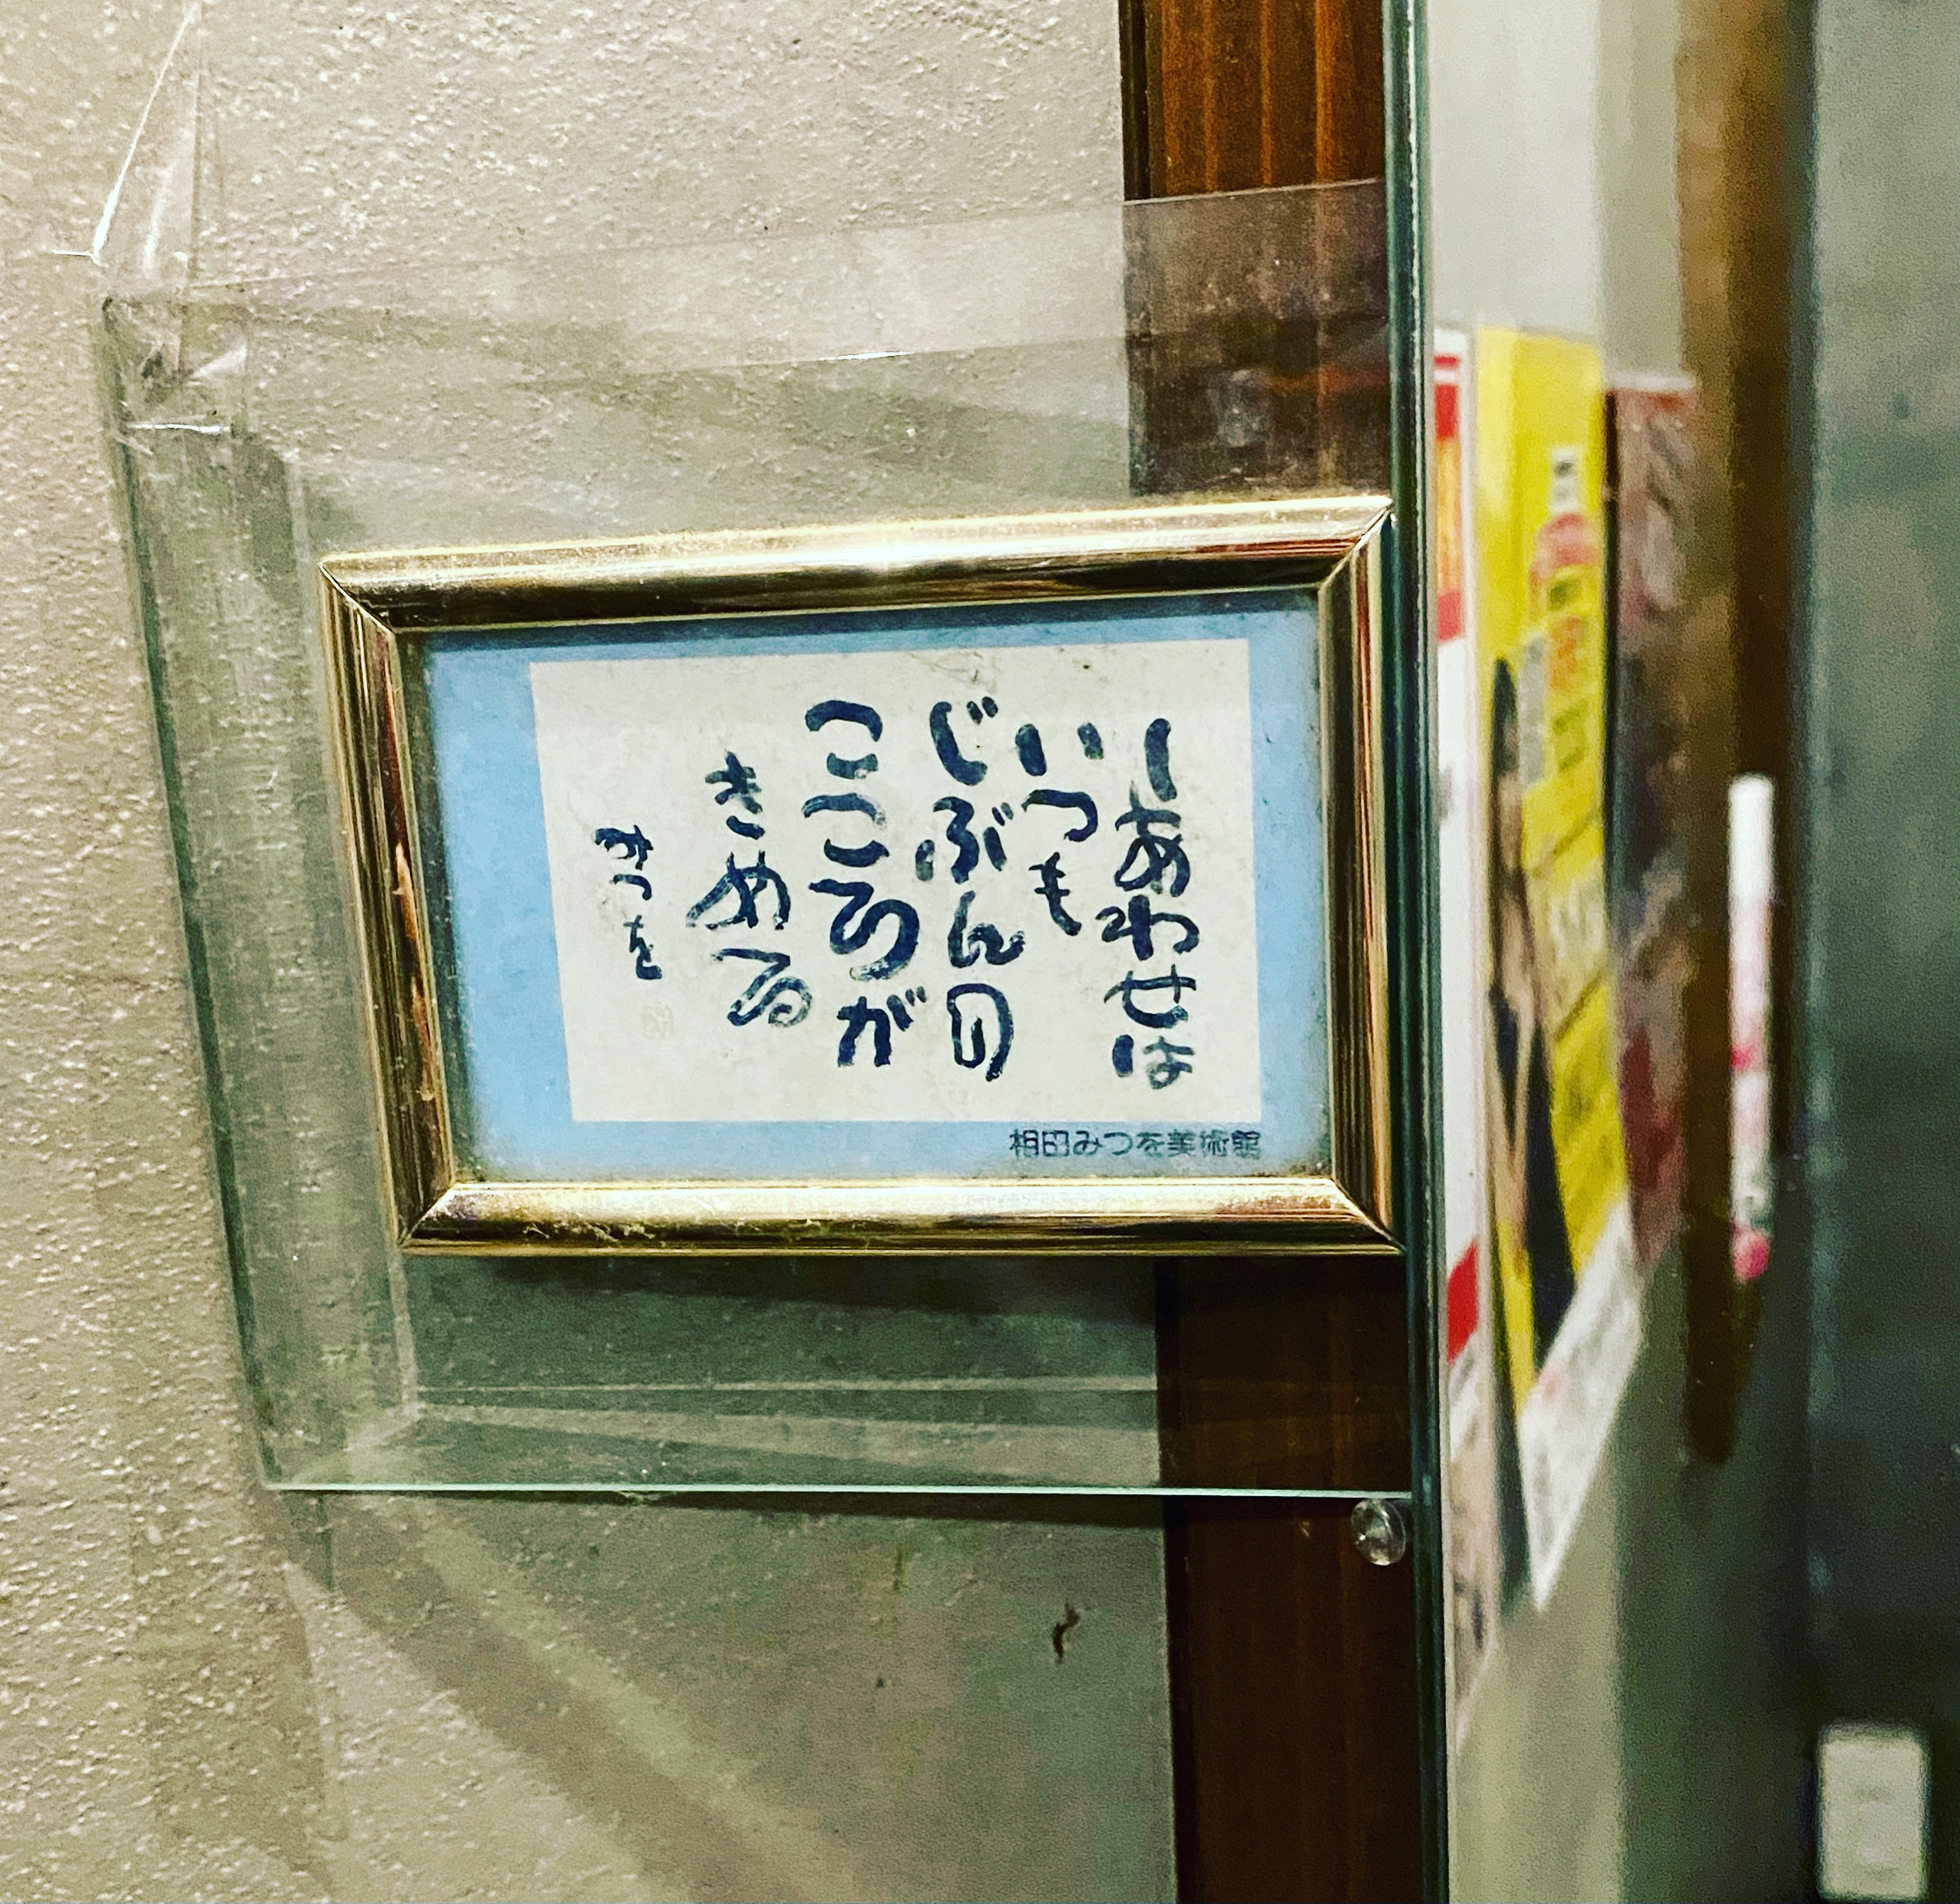 しあわせは
いつも
じぶんの
こころが
きめる
みつを
相田みつを美術館